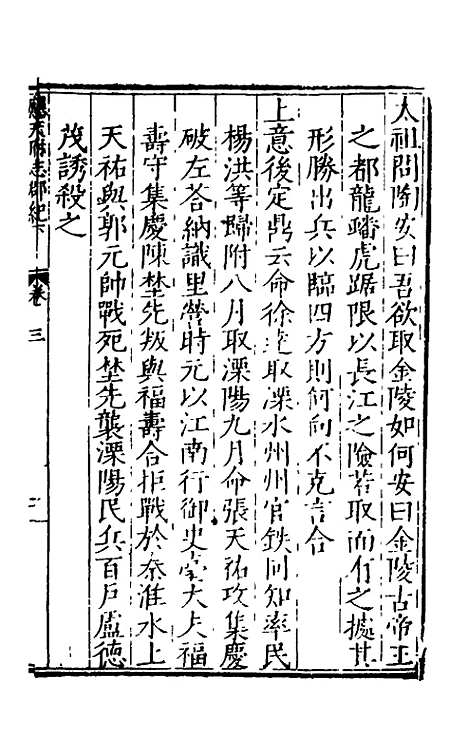 太祖問陶安曰吾欲取金陵如何安曰金陵古帝王
之都龍蹯虎踞限以長江之險若取而有之據其
形勝出兵以臨四方則何向不克言合
上意後定鼎云命徐達取溧水州州官鉄同知率民
楊洪等歸附八月取溧陽九月命張天祐攻集慶
破左荅納識里營時元以江南行御史臺大夫福
壽守集慶陳埜先叛與福壽合拒戰於秦淮水上
天祐與郭元帥戰死埜先襲溧陽民兵百戶盧德
茂誘殺之
應天府志郡紀下
卷三
二